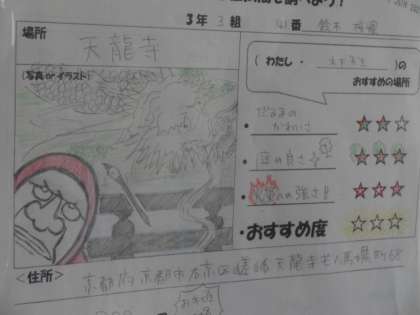 3年 3組 41番 鈴木
場所
天龍寺
(写真orイラスト)
(わたし・ )の
おすすめの場所
だるまの
かわいさ
庭の良さ
への強さ!!
おすすめ度
<住所>
京都府京都市右京区嵯峨天龍寺芒ノ馬場町68